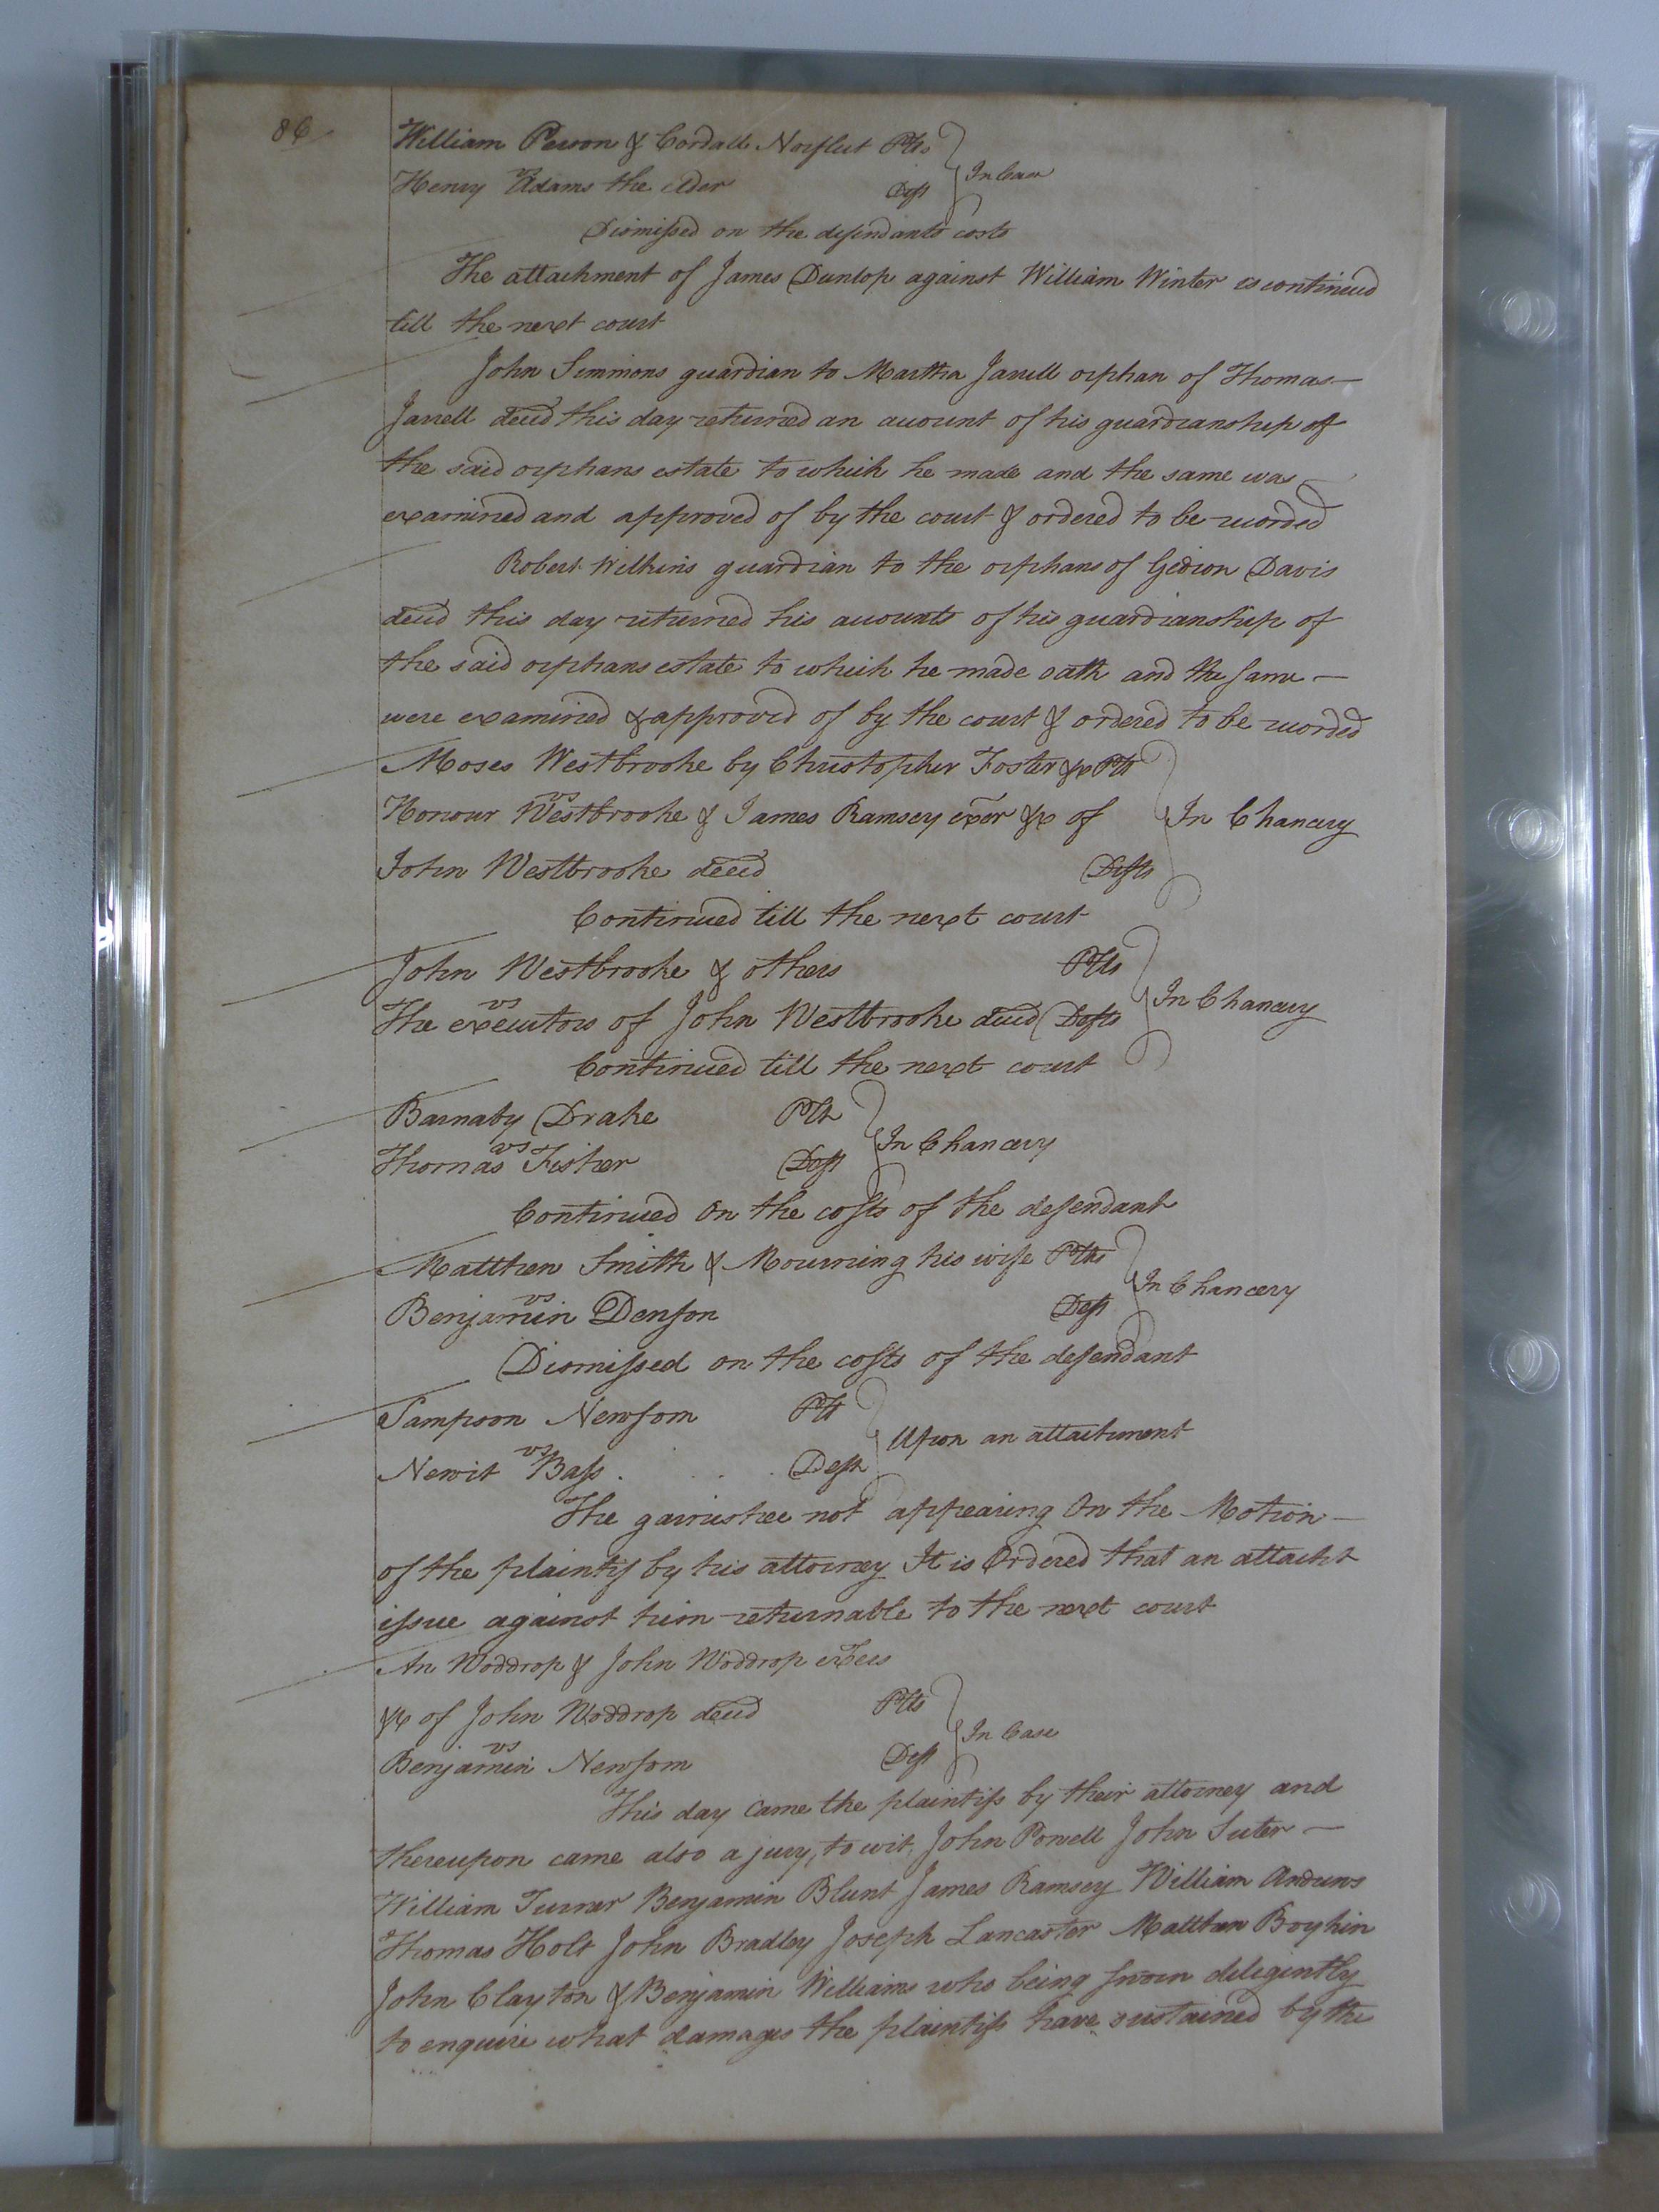 86
William Person & Cordall Norfleet Plts
vs
Henry Adams the elder Deft
In Case
Dismissed on the defendants costs
The attachment of James Dunlop against William Winter is continued
till the next court
John Simmons guardian to Martha Jarrell orphan of Thomas —
Jarrell decd this day returned an account of his guardianship of
the said orphans estate to which he made and the same was —
examined and approved of by the court & ordered to be recorded
Robert Wilkins guardian to the orphans of Gedion Davis
decd this day returned his accounts of his guardianship of
the said orphans estate to which he made oath and the same —
were examined & approved of by the court & ordered to be recorded
Moses Westbrooke by Christopher Foster &c Plt
vs
Honour Westbrooke & James Ramsey exor &c of
In Chancery
John Westbrooke decd Defts
Continued till the next court
John Westbrooke & others Plts
vs
In Chancery
The executors of John Westbrooke decd Defts
Continued till the next court
Barnaby Drake Plt
vs
In Chancery
Thomas Fisher Deft
Continued on the costs of the defendant
Matthew Smith & Mourning his wife Plts
vs
In Chancery
Benjamin Denson Deft
Dismissed on the costs of the defendant
Sampson Newsom Plt
vs
Upon an attachment
Newit Bass . . . . Deft
The garnishee not appearing On the Motion —
of the plaintif by his attorney It is Ordered that an attacht
issue against him returnable to the next court
An Woddrop & John Woddrop exers
&c of John Woddrop decd Plts
vs
In Case
Benjamin Newsom Deft
This day came the plaintifs by their attorney and
thereupon came also a jury, to wit, John Powell John Suter —
William Turner Benjamin Blunt James Ramsey William Andrews
Thomas Holt John Bradley Joseph Lancaster Matthew Boykin
John Clayton & Benjamin Williams who being sworn diligently
to enquire what damages the plaintifs have sustained by the